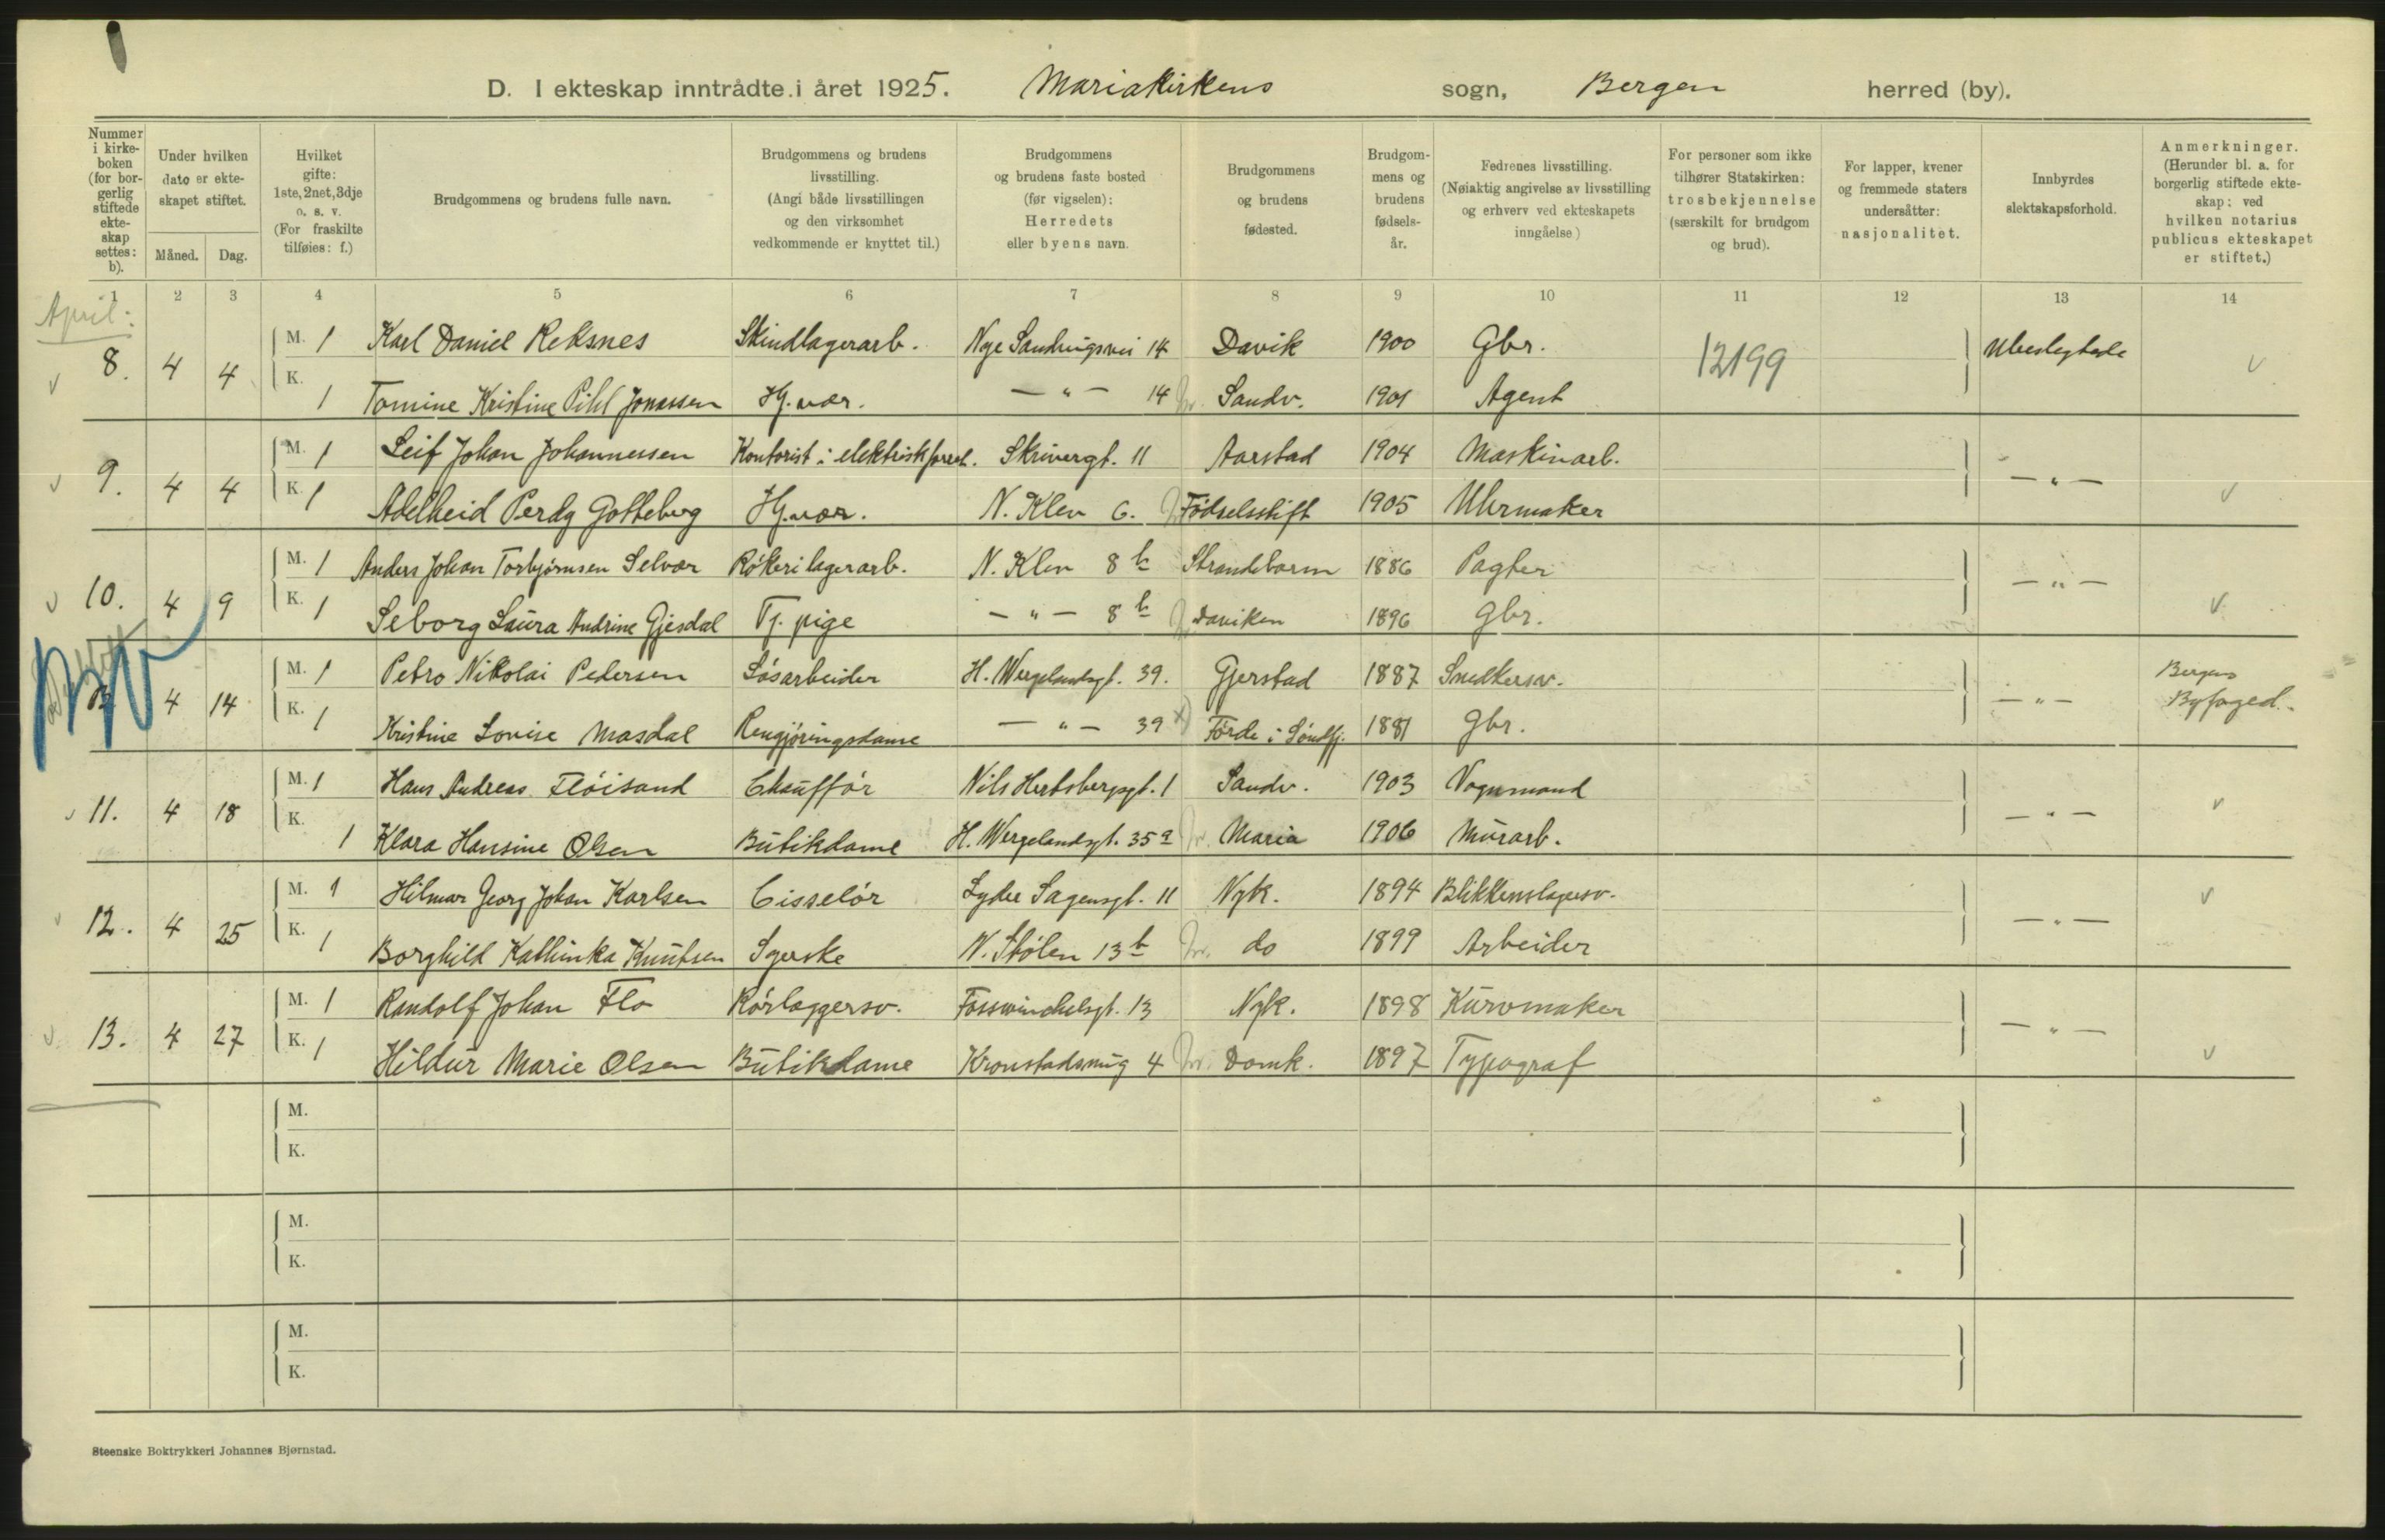 D. I ekteskap inntrådte i året 1925. Mariakirkens sogn, Bergen herred (by).
Nummer i kirkeboken (for borgerlig stiftede ekteskap settes: b).
Under hvilken dato er ekteskapet stiftet.
Måned. Dag.
Hvilket gifte: 1ste, 2net, 3dje o. s. v. (For fraskilte tilføies: f.)
Brudgommens og brudens fulle navn.
Brudgommens og brudens livsstilling. (Angi både livsstillingen og den virksomhet vedkommende er knyttet til.)
Brudgommens og brudens faste bosted (før vigselen): Herredets eller byens navn.
Brudgommens og brudens fødested.
Brudgommens og brudens fødselsår.
Fedrenes livsstilling. (Nøiaktig angivelse av livsstilling og erhverv ved ekteskapets inngåelse)
For personer som ikke tilhører Statskirken: trosbekjennelse (særskilt for brudgom og brud).
For lapper, kvener og fremmede staters undersåtter: nasjonalitet.
Innbyrdes slektskapsforhold.
Anmerkninger. (Herunder bl. a. for borgerlig stiftede ekteskap: ved hvilken notarius publicus ekteskapet er stiftet.)
1 2 3 4 5 6 7 8 9 10 11 12 13 14
April:
8. 4 4 M. 1 Karl Daniel Reksnes Skindlagerarb. Nye Sandviksvei 14 Davik 1900 Gbr. 12199 Ubeslegtede v
K. 1 Tomine Kristine Pihl Jonassen Hj.vær. — " — 14 Sandv. 1901 Agent
9. 4 4 M. 1 Leif Johan Johannessen Kontorist i elektrisk forret. Skivergt. 11 Aarstad 1904 Maskinarb. — " — v
K. 1 Adelheid Perdy Gotteberg Hj.vær. N. Klev 6. Födselsstift 1905 Uhrmaker
10. 4 9 M. 1 Anders Johan Torbjørnsen Selvær Rökeri lagerarb. N. Klev 8 b Strandebarm 1886 Pagter — " — v
K. 1 Seborg Laura Andrine Gjesdal Tj. pige — " — 8 b Daviken 1896 Gbr.
B 4 14 M. 1 Petro Nikolai Pedersen Løsarbeider H. Wergelandsgt. 39. Gjerstad 1887 Snedkersv. — " — Bergens Byfoged.
K. 1 Kristine Lovise Masdal Rengjøringsdame — " — 39 x) Førde i Søndfj. 1881 Gbr.
11. 4 18 M. 1 Hans Andreas Fløisand Chauffør Nils Hertsbergsgt. 1 Sandv. 1903 Vognmand — " — v
K. 1 Klara Hansine Olsen Butikdame H. Wergelandsgt. 35 a Maria 1906 Murarb.
12. 4 25 M. 1 Hilmar Georg Johan Karlsen Cisselør Lyder Sagensgt. 11 Nyk. 1894 Blikkenslagersv. — " — v
K. 1 Borghild Kathinka Knutsen Syerske N. Stølen 13 b do 1899 Arbeider
13. 4 27 M. 1 Randolf Johan Flo Rörlæggersv. Fosswinckelsgt. 13 Nyk. 1898 Kurvmaker — " — v
K. 1 Hildur Marie Olsen Butikdame Kronstadsmug 4 Domk. 1897 Typograf
M.
K.
M.
K.
M.
K.
Steenske Boktrykkeri Johannes Bjørnstad.